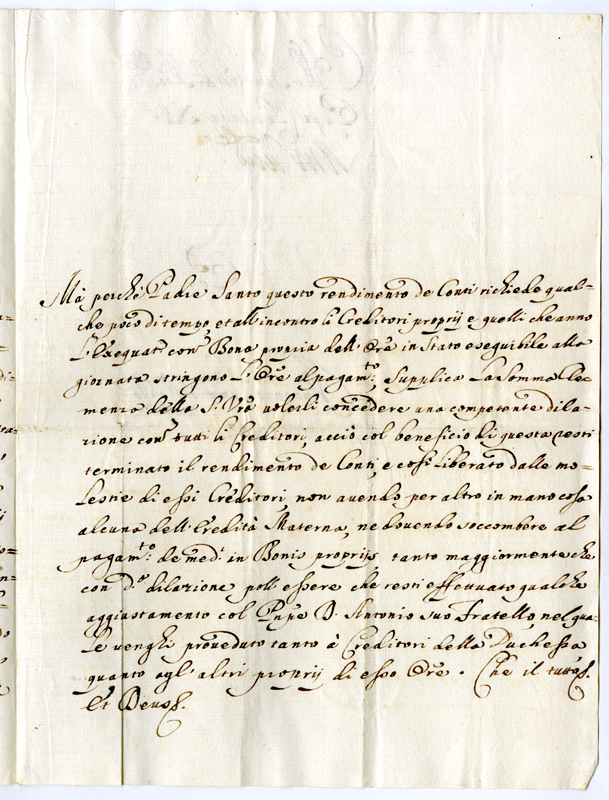 Mà perche Padre Santo questo rendimento de Conti richiede qual=
che poco di tempo, et all'incontro li Creditori proprij e quelli che anno
l'exequat.r con.a Bona propria dell'Ore in stato eseguibile alla
giornata stringono l'Ore al pagam.to, supplica la somma Cle=
menza della S. Vra volerli concedere una competente dila=
zione con tutti li Creditori, acciò col beneficio di questa resti
terminato il rendimento de Conti, e così liberato dalle mo=
lestie di essi Creditori, non avendo per altro in mano cosa
alcuna dell'Eredità Materna, ne dovendo soccombere al
pagam.to de med.i in Bonis proprijs, tanto maggiormente che
con d.a dilazione poss' essere che resti effettuato qualche
aggiustamento col Pnpe D. Antonio suo Fratello, nel qua=
le venghi proveduto tanto à Creditori della Duchessa
quanto agl'altri proprij di esso Ore. Che il tutto &.
Et Deus &.